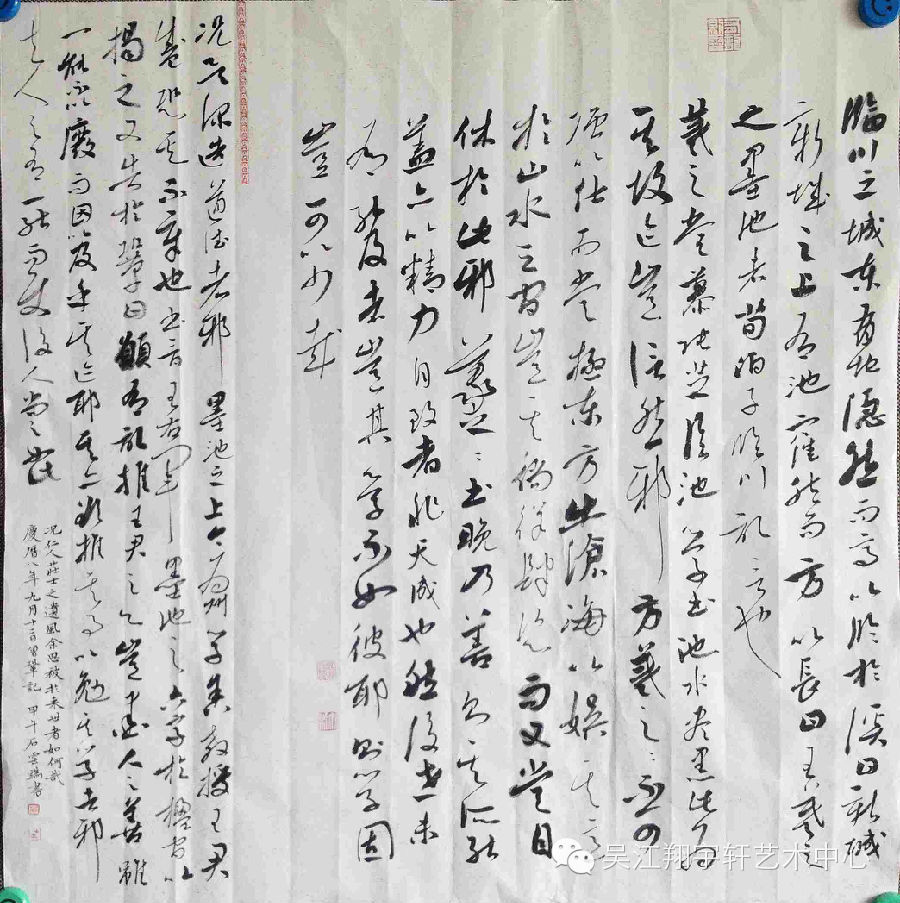 臨川之城東有地隱然而高以臨於溪曰新城
新城之上有池窪然而方以長曰王羲之
之墨池者荀伯子臨川記云也
羲之嘗慕張芝臨池學書池水盡黑此為
其故迹豈信然邪 方羲之之不可
強以仕而嘗極東方出滄海以娛其意
於山水之間豈其徜徉肆恣而又嘗自
休於此邪 羲之之書晚乃善則其所能
蓋亦以精力自致者非天成也然後世未
有能及者豈其學不如彼耶則學固
豈可以少哉
況欲深造道德者邪 墨池之上今為州學舍教授王君
盛恐其不章也書晉王右軍墨池之六字於楹間以
揭之又告於鞏曰願有記推王君之心豈愛人之善雖
一能不以廢而因以及乎其迹耶其亦欲推其事以勉其學者邪
夫人之有一能而使後人尚之如此
況仁人莊士之遺風余思被於來世者如何哉
慶曆八年九月十二日曾鞏記 甲午石雲瑞書
吴江翔宇轩艺术中心